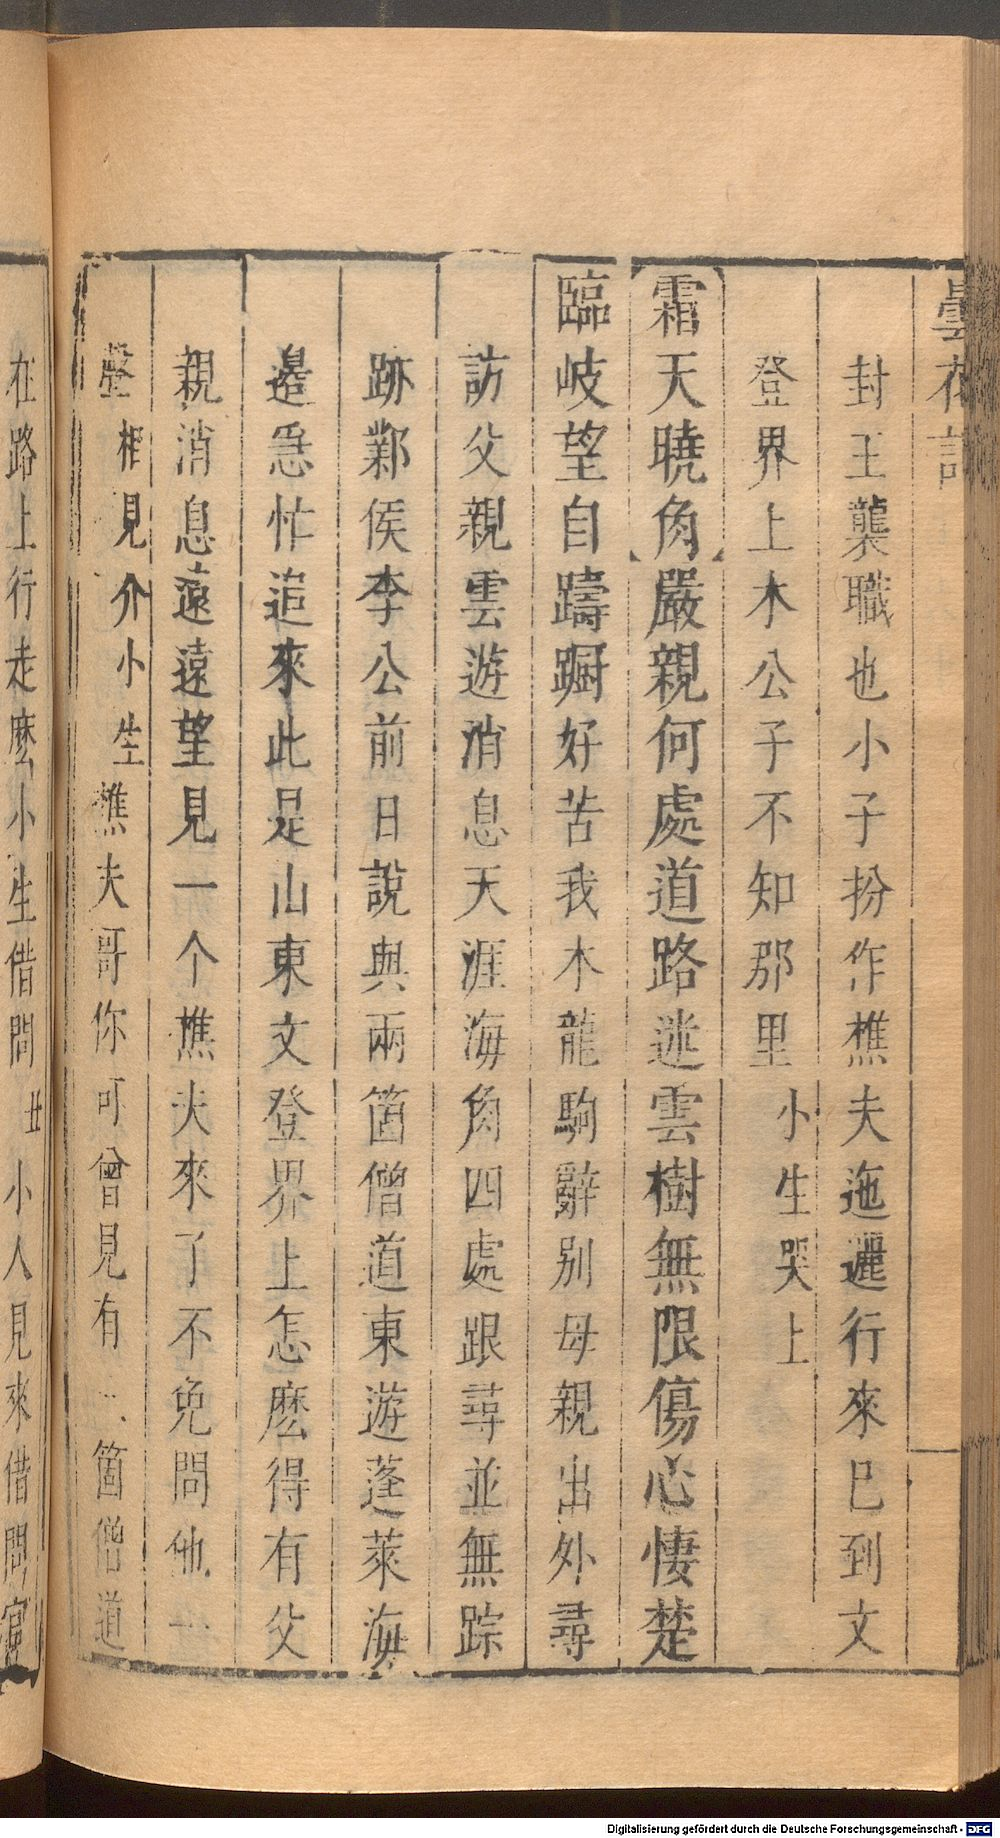 曇花記
封王襲職也小子扮作樵夫迤邐行來已到文
登界上木公子不知那里小生哭上
霜天曉角嚴親何處道路迷雲樹無限傷心悽楚
臨岐望自躊蹰好苦我木龍駒辭别母親出外尋
訪父親雲遊消息天涯海角四處跟尋並無踪
跡鄴侯李公前日說與兩箇僧道東遊蓬萊海
邊急忙追來此是山東文登界上怎麽得有父
親消息遠遠望見一个樵夫來了不免問他一
聲相見介小生樵夫哥你可曾見有箇僧道
在路上行走麽小生借問丑小人見來借問官
Digitalisierung gefördert durch die Deutsche Forschungsgemeinschaft - DFG